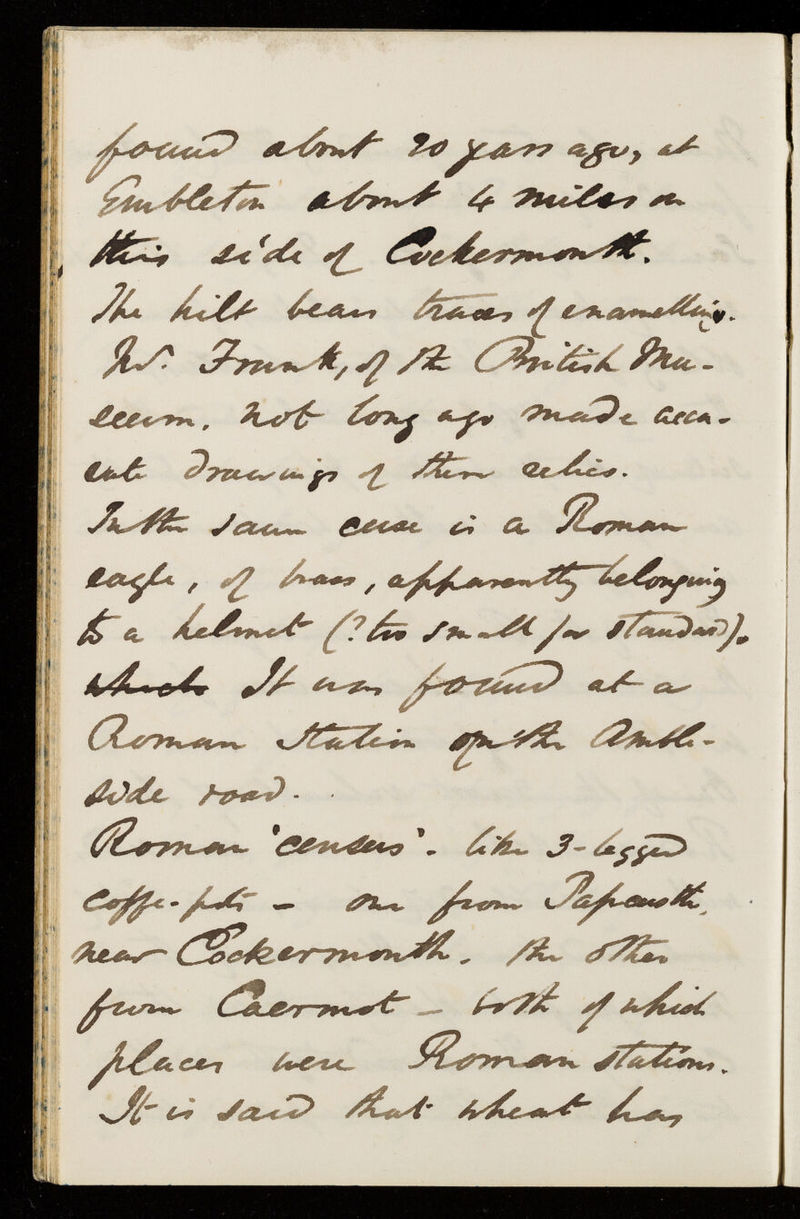 found about 20 years ago, at
Embleton about 4 miles on
this side of Cockermouth.
The hilt bears traces of enamelling.
Mr. Frank, of the British Mu-
seum, not long ago made accu-
rate drawings of these relics.
In the same case is a Roman
eagle, of brass, apparently belonging
to a helmet (? too small for standard).
which It was found at a
Roman Station on the Amble-
side road.
Roman 'censers' - like 3-legged
coffe-pots - one from Papcastle,
near Cockermouth. the other
from Caermot - both of which
places were Roman stations.
It is said that wheat has